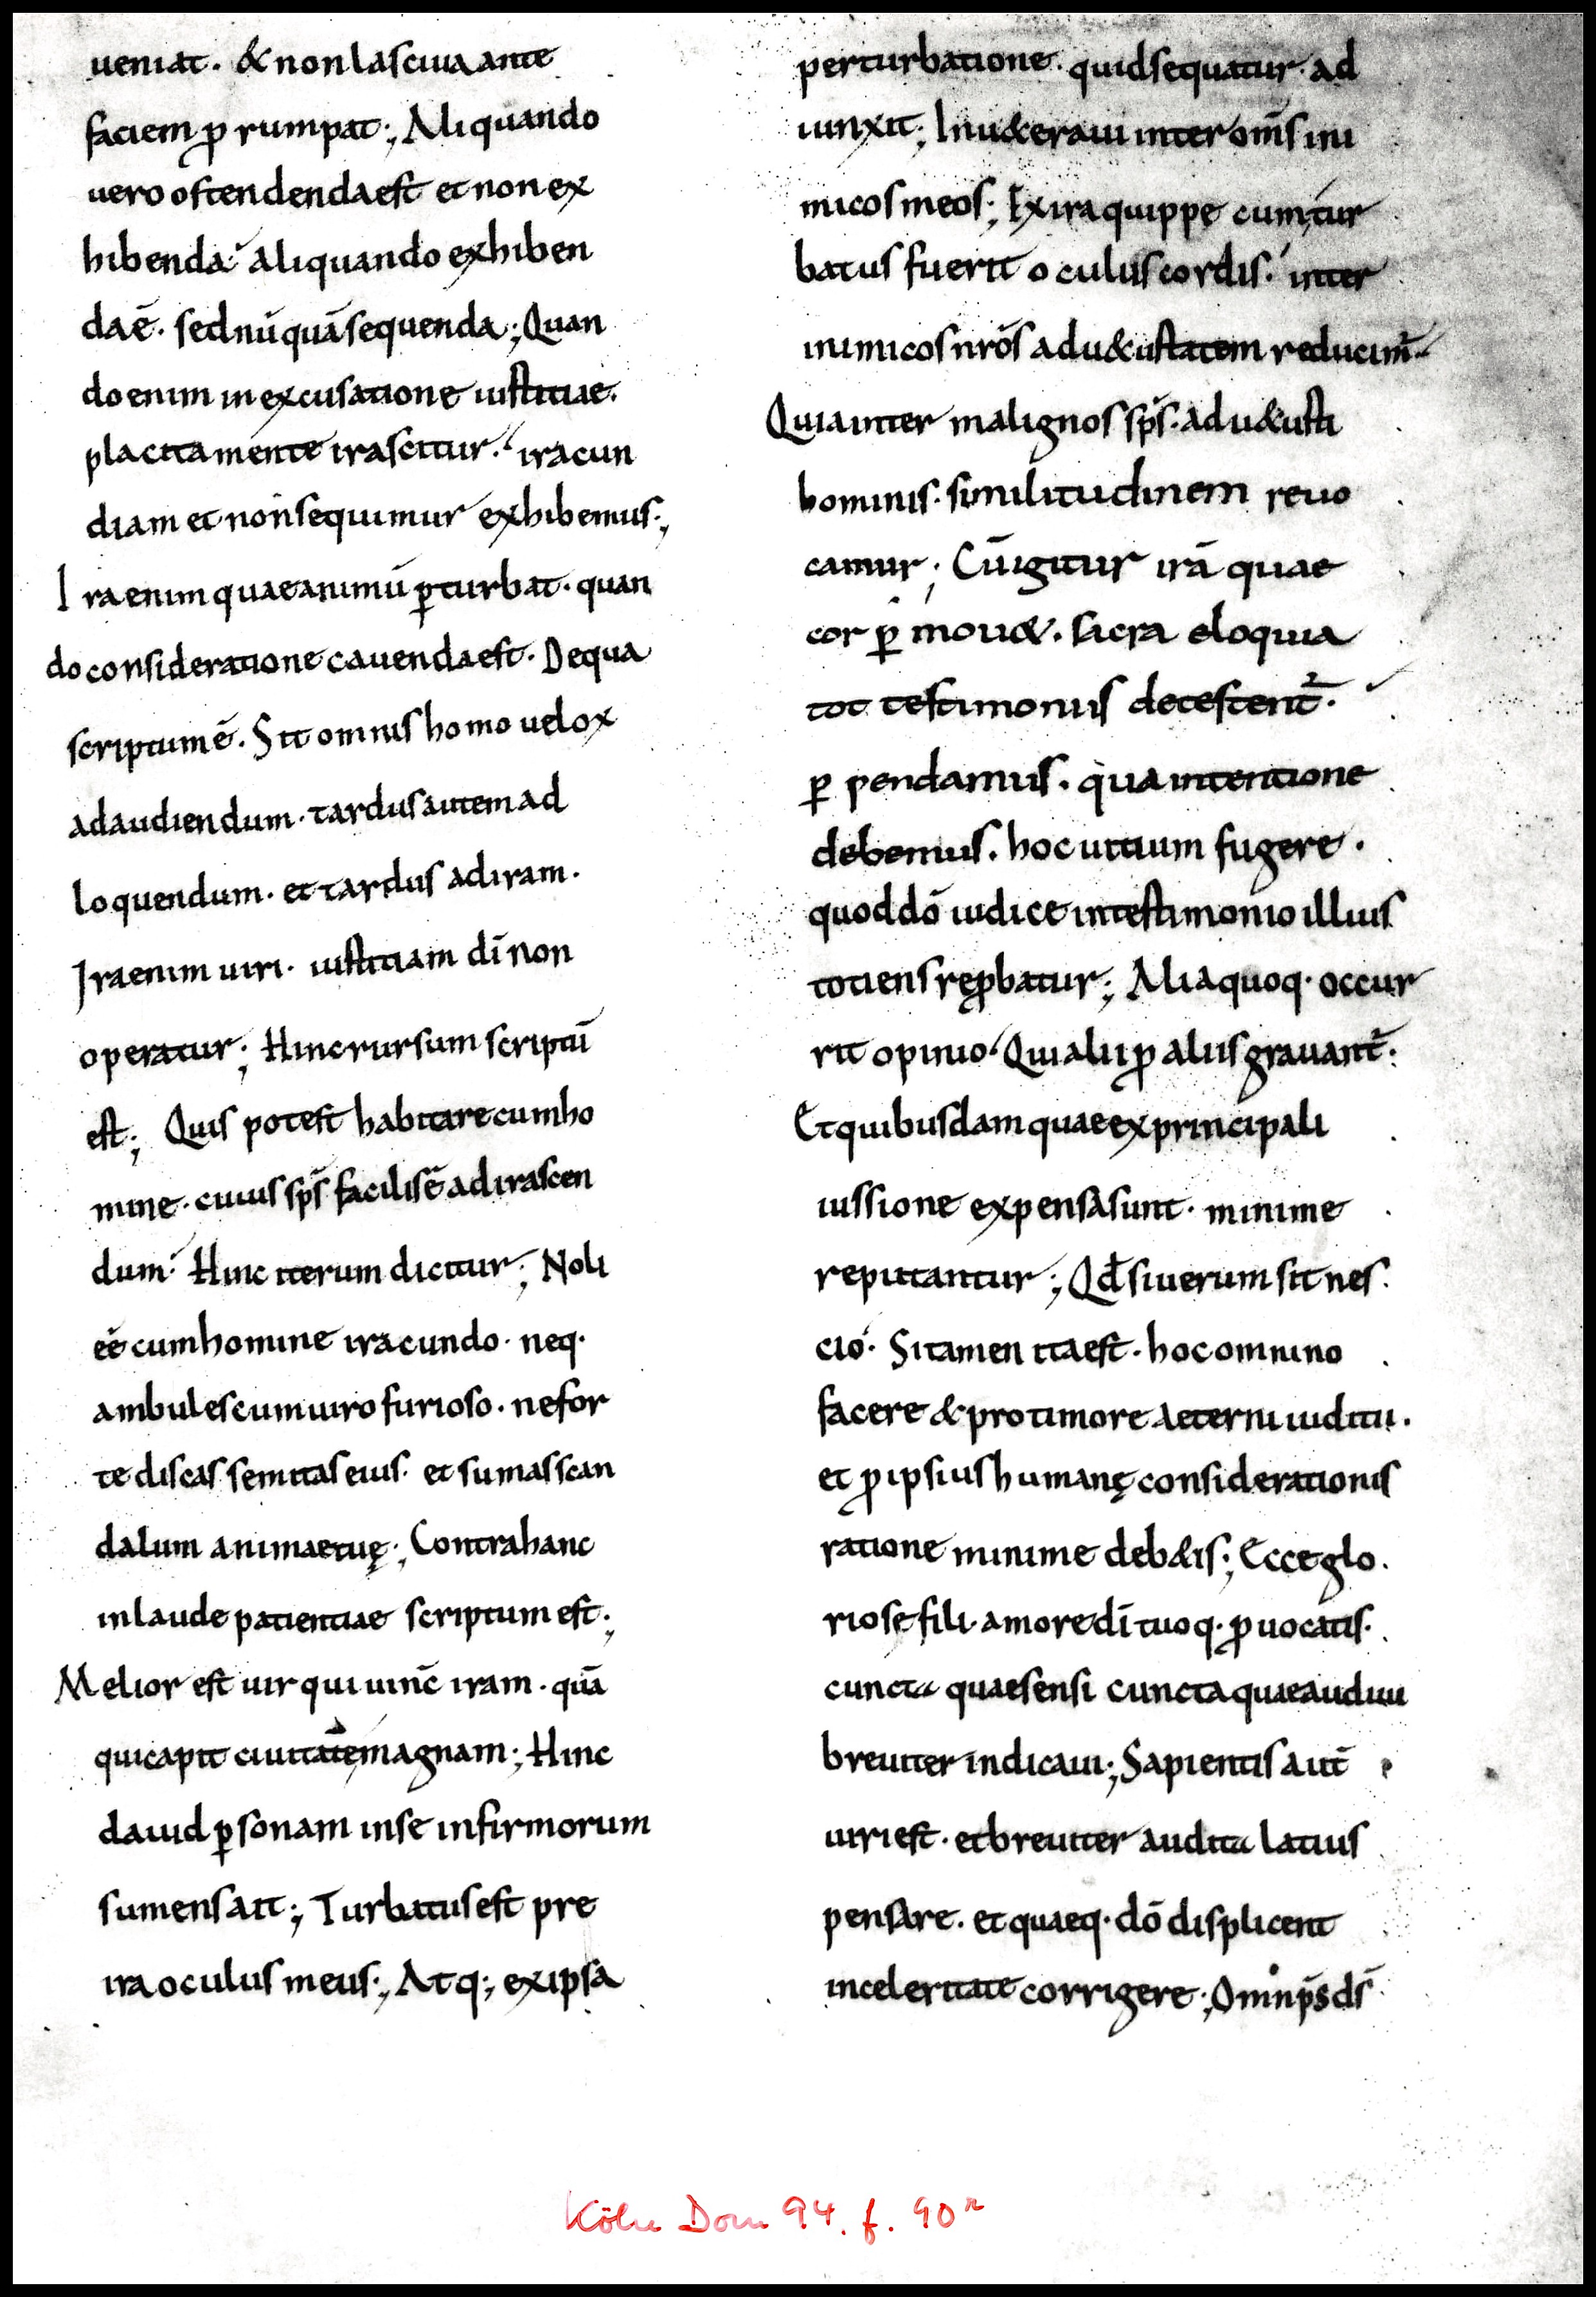 ueniat. & non lasciua ante
faciem ꝓrumpat; Aliquando
uero ostendenda est et non ex
hibenda. aliquando exhiben
da ē. sed nū quā sequenda; Quan
do enim in excusatione iustitiae.
placita mente irascitur. iracun
diam et non sequimur exhibemus;
Ira enim quae animū ꝑturbat. quan
do consideratione cauenda est. De qua
scriptum ē. Sit omnis homo uelox
ad audiendum. tardus autem ad
loquendum. et tardus ad iram.
Ira enim uiri. iustitiam dī non
operatur; Hinc rursum scriptū
est; Quis potest habitare cum ho
mine. cuius sp̄s facilis ē ad irascen
dum. Hinc iterum dicitur; Noli
eē cum homine iracundo. neq.
ambules cum uiro furioso. ne for
te discas semitas eius. et sumas scan
dalum animae tuę; Contra hanc
in laude patientiae scriptum est;
Melior est uir qui uinc̄ iram. quā
qui capit ciuitatem magnam; Hinc
dauid ꝑsonam in se infirmorum
sumens ait; Turbatus est pre
ira oculus meus; Atq; ex ipsa
perturbatione. quid sequatur. ad
iunxit; Inu&eraui inter om̄s ini
micos meos; Ex ira quippę cum tur
batus fuerit oculus cordis. inter
inimicos nr̄os ad u&ustatem reducim̄.
Quia inter malignos sp̄s. ad u&usti
hominis. similitudinem reuo
camur; Cū igitur irā quae
cor ꝑmou&. sacra eloquia
tot testimoniis detestent̄.
ꝑpendamus. qua intentione
debemus. hoc uitium fugere.
quod dō iudice in testimonio illius
totiens reꝓbatur; Alia quoq. occur
rit opinio. Qui alii ꝓ aliis grauant̄.
Et quibusdam quae ex principali
iussione expensa sunt. minime
reputantur; Qđ si uerum sit nes
cio. Si tamen ita est. hoc omnino
facere & pro timore aeterni iuditii.
et ꝓ ipsius humanę considerationis
ratione minime deb&is; Ecce glo
riose fili. amore dī tuoq. ꝓuocatis.
cuncta quae sensi cuncta quae audiui
breuiter indicaui; Sapientis aut̄
uiri est. et breuiter audita latius
pensare. et quaeq. dō displicent
in celeritate corrigere; Omnip̄s ds̄
Köln Dom 94. f. 90r